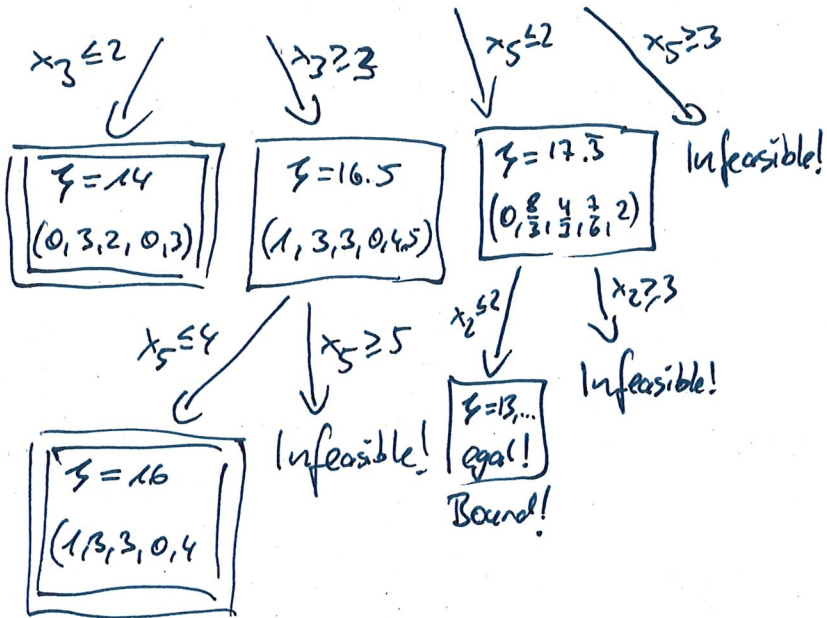 x₃ ≤ 2
x₃ ≥ 3
x₅ ≤ 2
x₅ ≥ 3
ζ = 14
(0, 3, 2, 0, 3)
ζ = 16.5
(1, 3, 3, 0, 4.5)
ζ = 17.3̅
(0, 8/3, 4/3, 7/6, 2)
Infeasible!
x₅ ≤ 4
x₅ ≥ 5
x₂ ≤ 2
x₂ ≥ 3
ζ = 16
(1, 3, 3, 0, 4
Infeasible!
ζ = 13,...
egal!
Bound!
Infeasible!